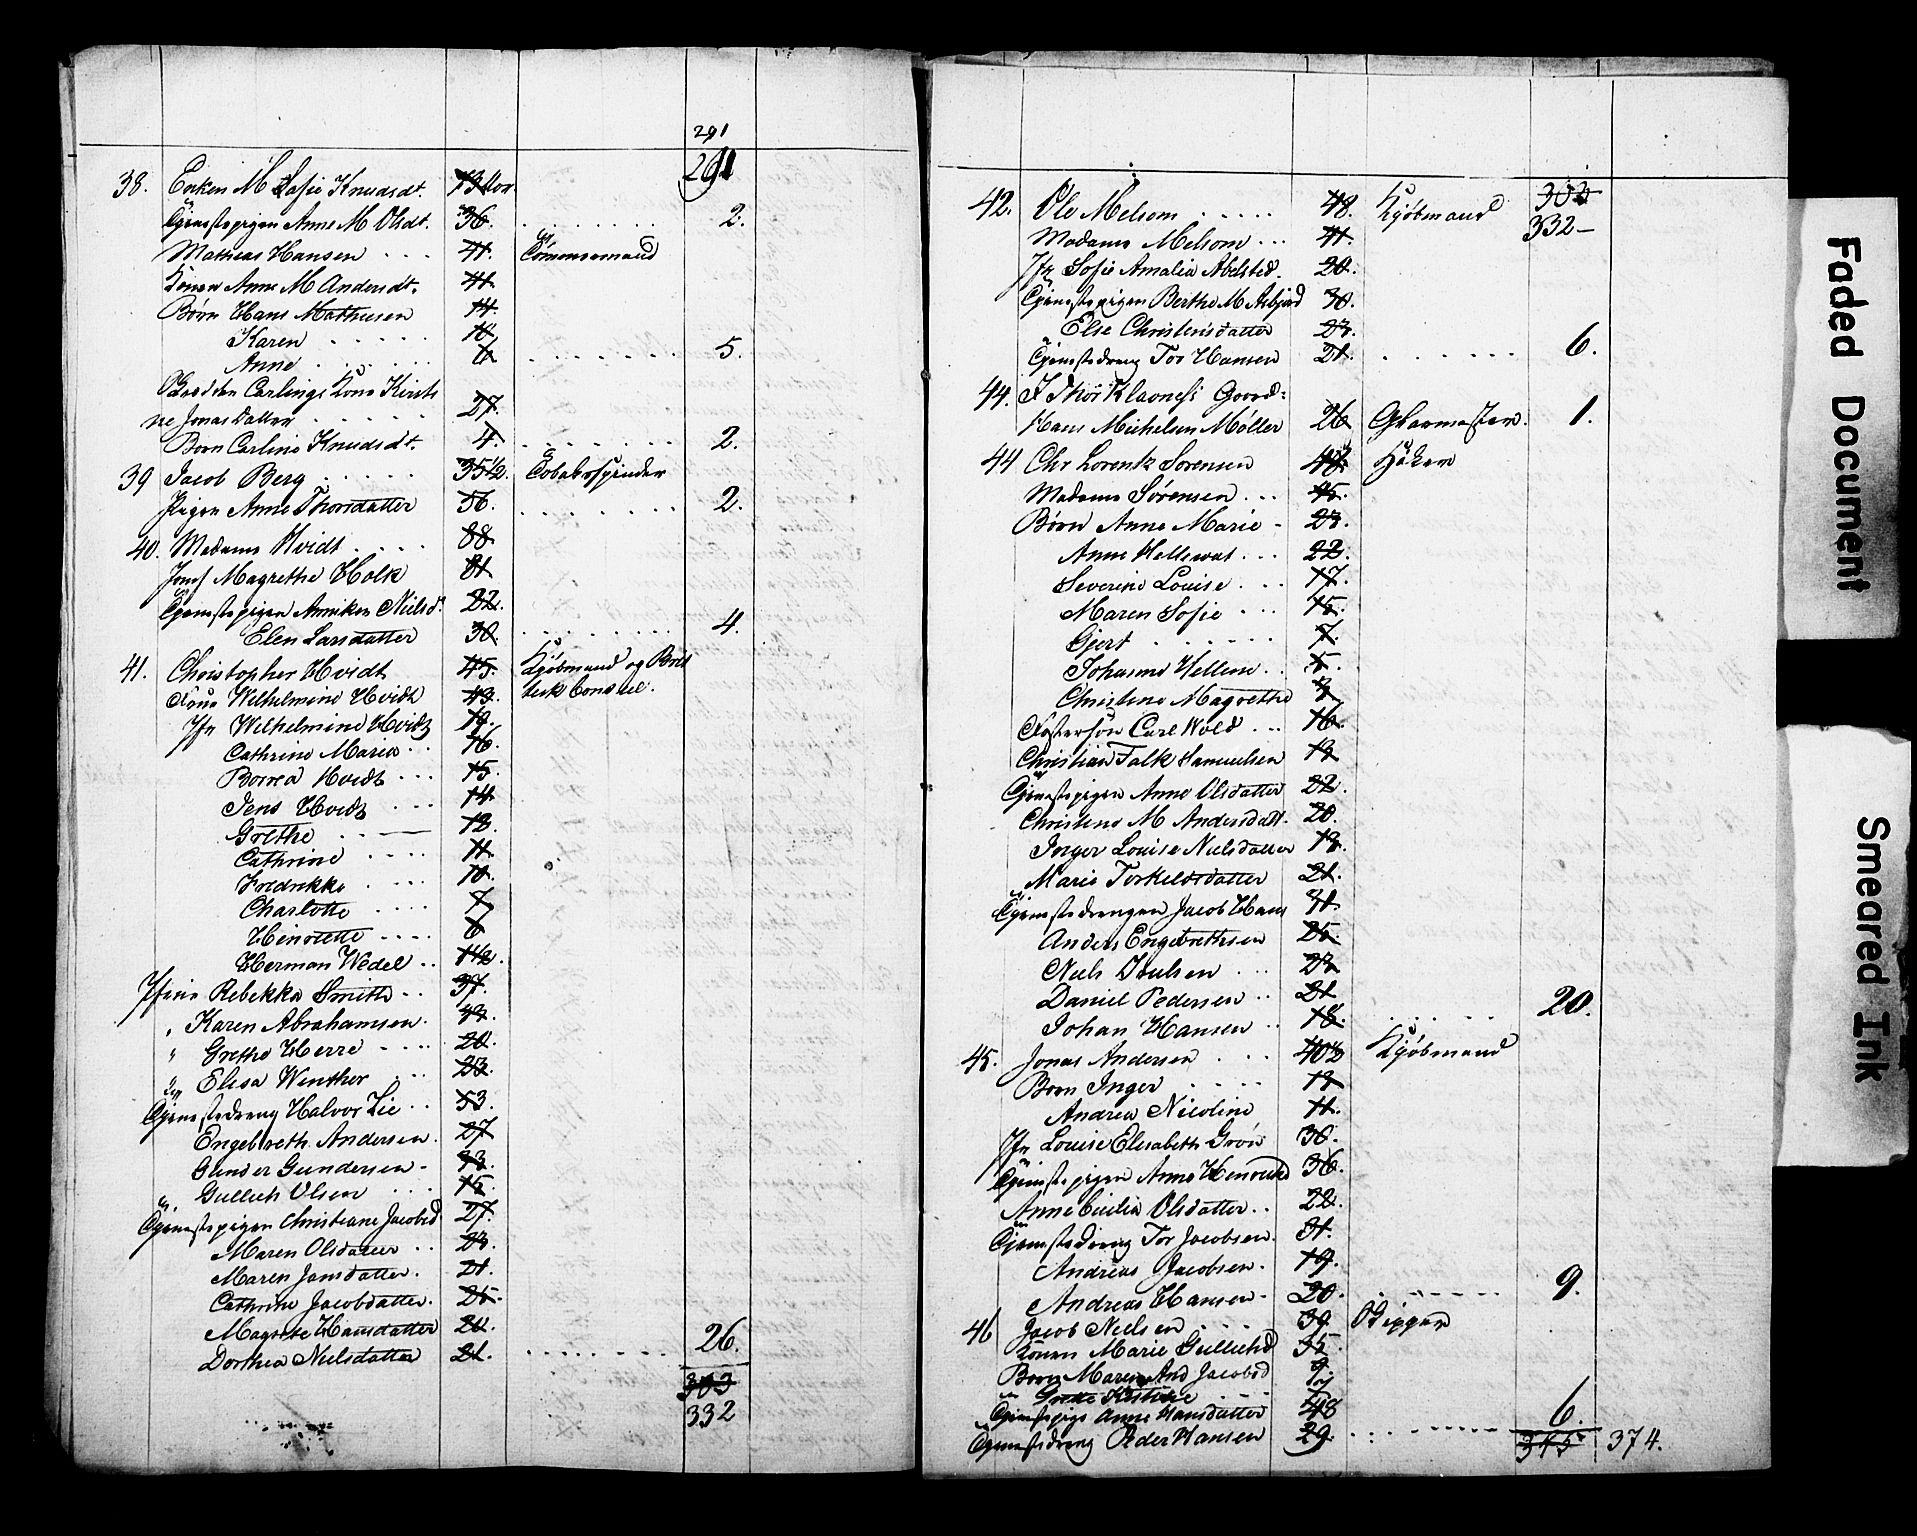 291
291
38. Enken M Sofie Knudsdt.
Tjenestepigen Anne M Olsdt. 36. 2.
Mathias Hansen 41. Tømmermand
Konen Anne M Andersdt. 41.
Børn Hans Mathiesen 14.
Karen 10
Anne 6 5.
Carlings Kone Kirsti
ne Jonasdatter 27.
Barn Carline Knudsdt. 4. 2.
39 Jacob Berg 35 1/2. Tobakspinder
Pigen Anne Thorsdatter 56. 2.
40. Madame Hvidt 88
Jomf Magrethe Holk 81
Tjenestepigen Anniken Nielsd. 22.
Elen Larsdatter 30. 4.
41. Christopher Hvidt 45. Kjøbmand og Brit
Kone Wilhelmine Hvidt 43. tisk Consul.
Jfr Wilhelmine Hvidt 19.
Cathrine Maria 16.
Borrea Hvidt 15.
Jens Hvidt 14.
Grethe 12.
Cathrine 11.
Fredrikke 10.
Charlotte 7
Henriette 6
Herman Wedel 1 1/2.
Rebekka Smith 37.
" Karen Abrahamsen.
" Grethe Herre 20.
" Elisa Winther 23.
Tjenestedreng Halvor Lie 53.
Engebreth Andersen. 27
Gunder Gundersen
Gullich Olsen 15.
Tjenestepigen Christiane Jacobsd 27.
Maren Olsdatter 23.
Maren Jansdatter. 21.
Cathrine Jacobsdatter. 25.
Magrete Hansdatter
Dorthea Nielsdatter 21. 26.
303
332
42. Ole Melsom 48. Kjøbmand 303
332
Madame Melsom 41.
Jfr Sofie Amalia Abelsted. 20.
Tjenestepigen Berthe M Asbjørd 30.
Else Christensdatter 23.
Tjenestedreng Tor Hansen 21. 6.
44.
Hans Michelsen Møller 26 Glarmester. 1.
44 Chr Lorentz Sørensen 48. Høker
Madame Sørensen 45.
Børn Anne Marie 23.
Anne 22.
Severine Louise 17.
Maren Sofie 15.
Gjert 7.
Johanne Hellene 5.
Christine Magrethe
Fostersøn Carl Wold 16.
Christian Falk Samuelsen 13
Tjenestepigen Anne Olsdatter 22.
Christine M Andersdatt. 20.
Inger Louise Nielsdatter 18.
Marie Torkeldsdatter 21.
Tjenestedrengen Jacob Hans 31.
Anders Engebrethsen 25.
Niels 23
Daniel Pedersen 21
Johan Hansen 18. 20.
45. Jonas Andersen 40 1/2 Kjøbmand
Børn Inger 13
Andrea Nicoline 11.
Jfr Louise Elisabeth Grøn 30.
Tjenestepigen Anne 36.
Anne Cicilia Olsdatter 22.
Tjenestedreng Tor Jacobsen. 31.
Andreas Jacobsen. 19.
Andreas Hansen 20. 9.
46 Jacob Nielsen 39
Konen Marie Gullichsd 35.
Børn Maren And Jacobsd 9
Grette
Tjenestepige Anne Hansdatter 48 6.
Tjenestedreng Peder Hansen 29. 345 374.
Faded Document
Smeared Ink